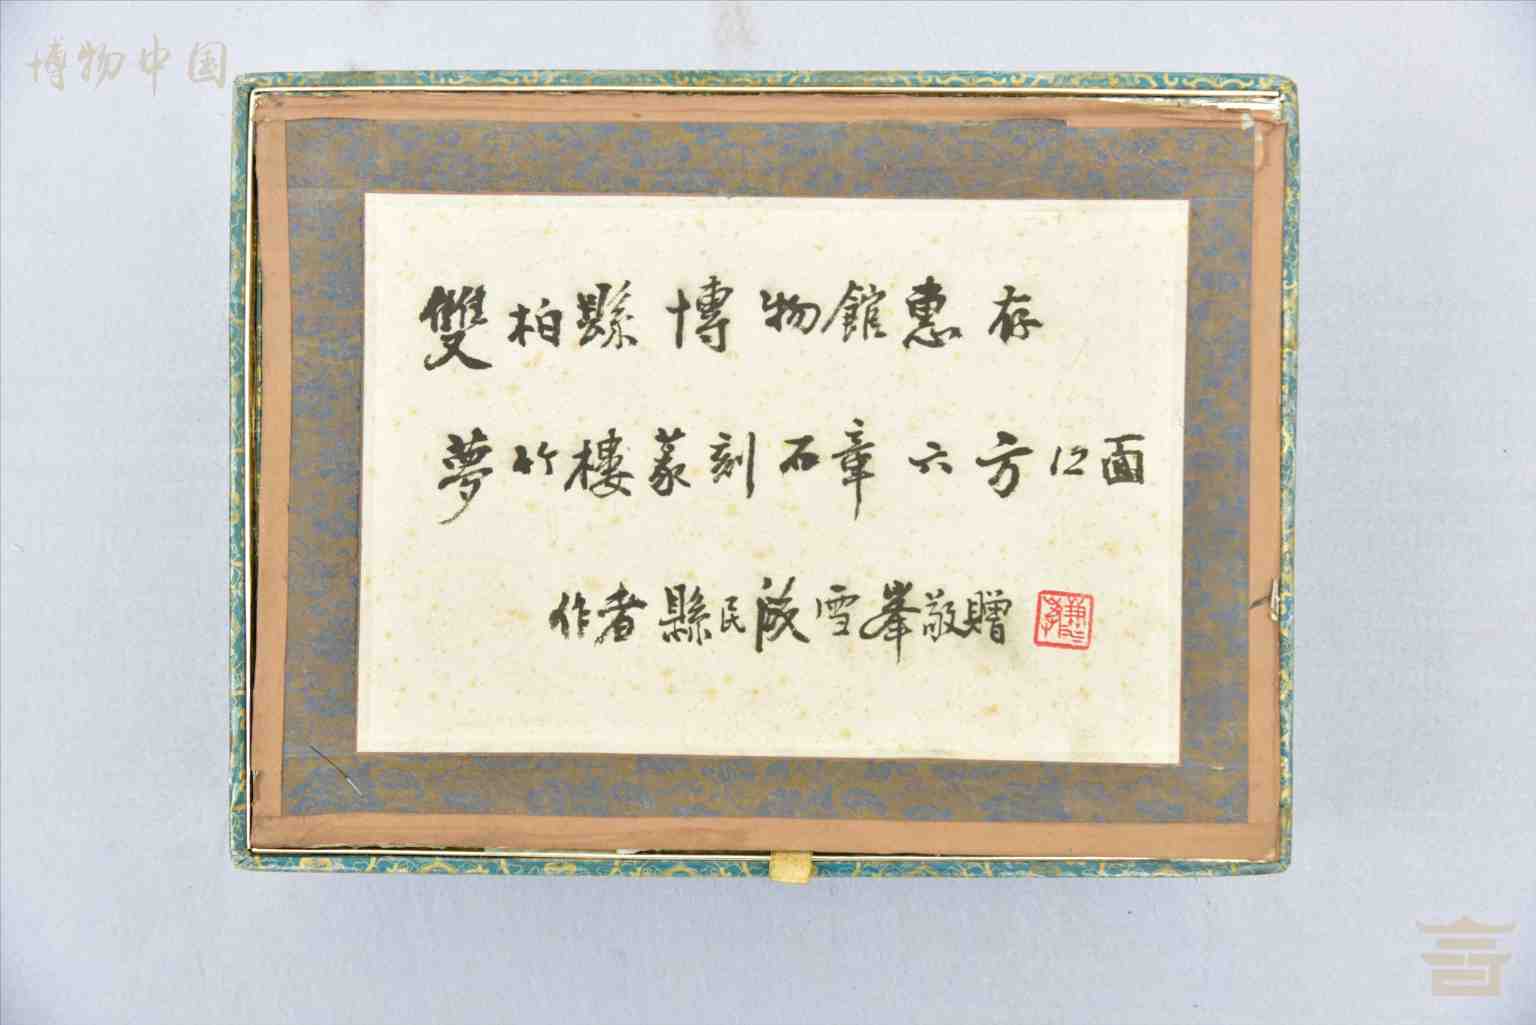 博物中国
雙柏縣博物館惠存
夢竹樓篆刻石章六方12面
作者縣民 雪峯敬贈